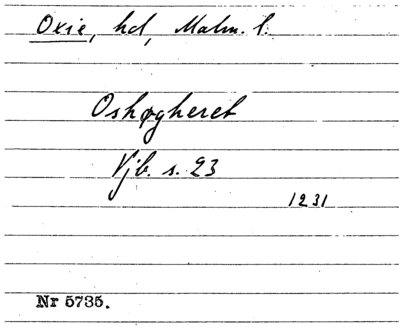 Oxie, hd, Malm. l.
Oshøgheret
Vjb. s. 23
1231
Nr 5735.